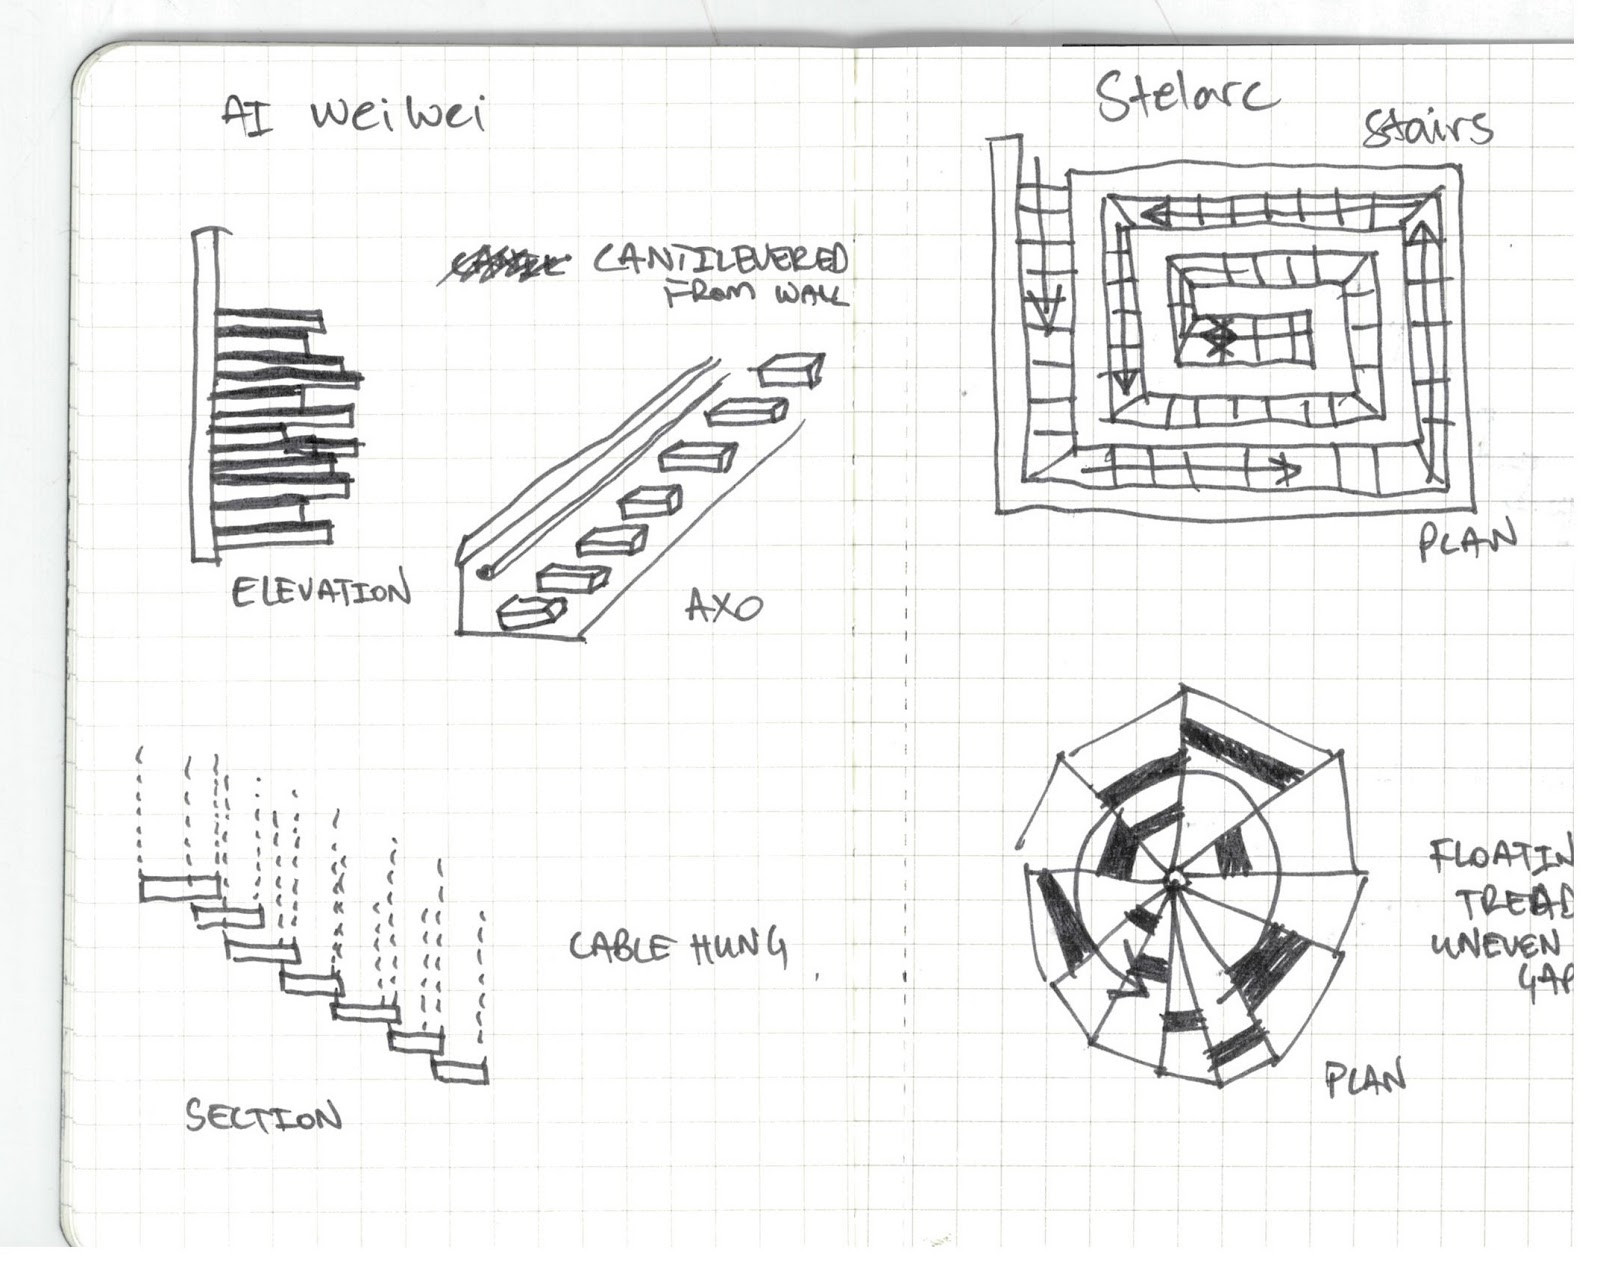 AI Weiwei
CANTILEVERED
FROM WALL
ELEVATION
AXO
CABLE HUNG
SECTION
Stelarc
Stairs
PLAN
FLOATIN
TREAD
UNEVEN
GAP
PLAN